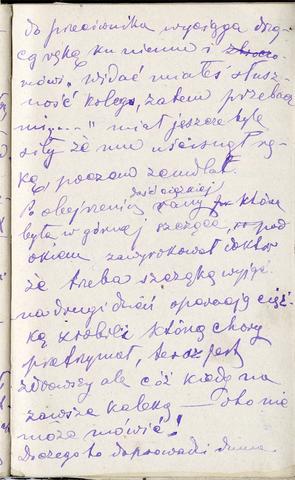 do przeciwnika wyciąga drżą
cą rękę ku niemu i
mówi "Widać miałeś słusz
ność kolego, zatem przebacz
mi....." miał jeszcze tyle
siły że mu uścisnął rę-
kę, poczem zemdlał.
Po obejrzeniu rany dość ciężkiej która
była w górnej szczęce, pod
okiem zawyrokował doktor
że trzeba szczękę wyjąć.
na drugi dzień operację cięż
ką zrobili którą chory
przetrzymał, teraz jest
zdrowszy ale cóż kiedy na
zawsze kaleką — bo nie
może mówić!
Do czego to doprowadzi duma